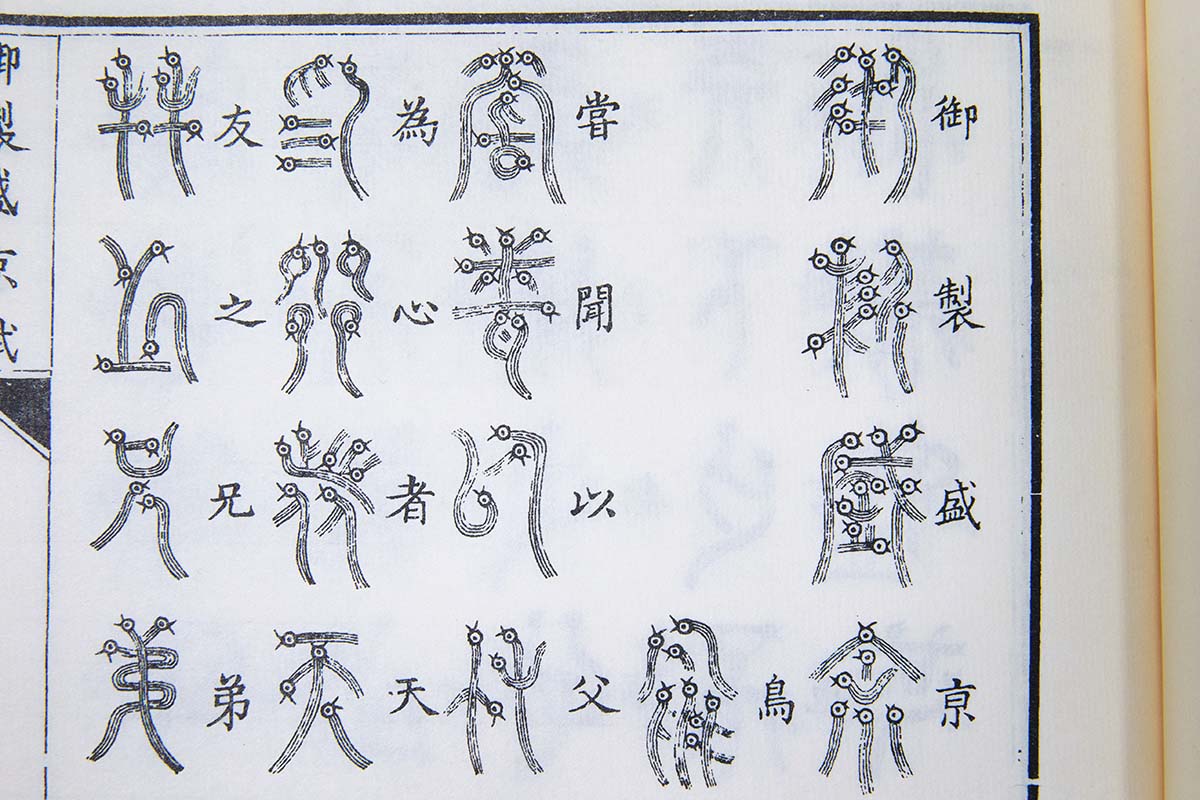 御製盛亰
鳥
嘗聞以父
為心者天
友之兄弟
御製盛京賦